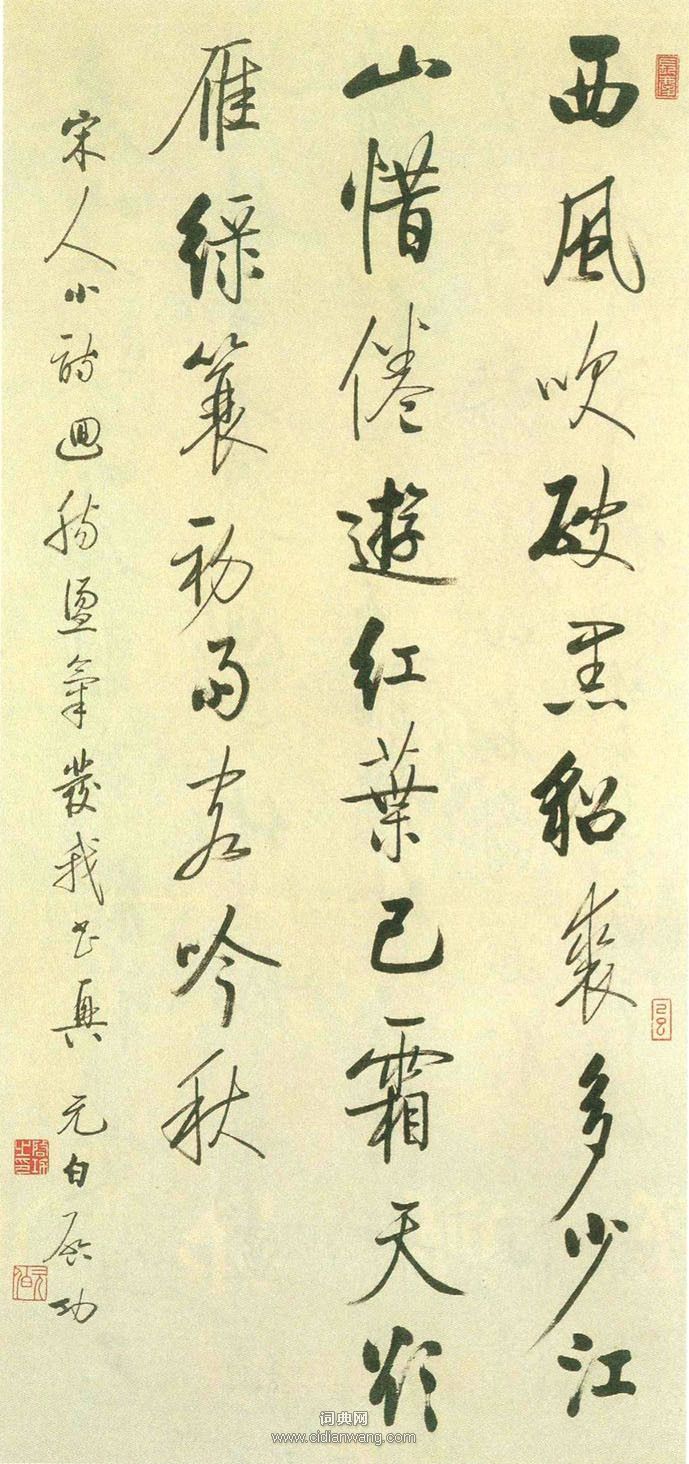 西風吹破黑貂裘多少江
山惜倦遊紅葉已霜天欲
雁緑蓑初雨客吟秋
宋人小詩迴腸盪氣發我書興 元白啟功
词典网
www.cidianwang.com